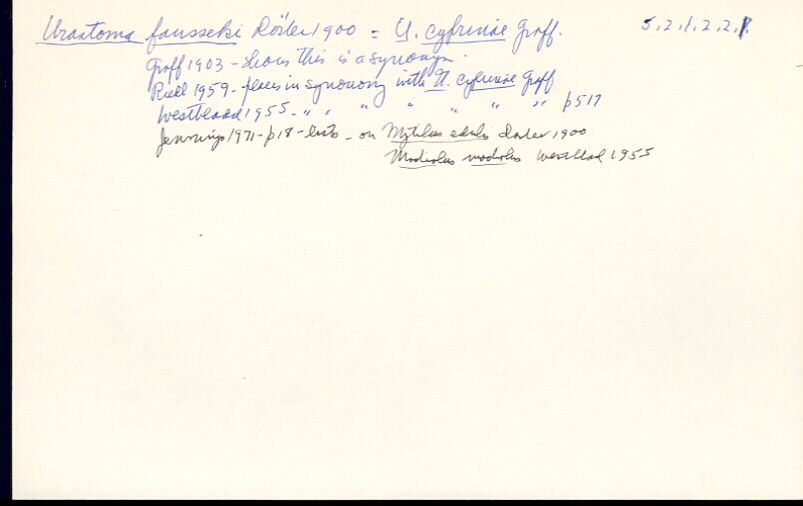 Urastoma fausseki Dörler 1900 = U. cyprinae Graff. 5.2.1.2.2.1.
Graff 1903 - shows this is a synonym.
Riedl 1959 - places in synonomy with U. cyprinae Graff
Westblad 1955 - " " " " " " " p517
Jennings 1971 - p18 - lists - on Mytilus edulis Dorler 1900
Modiolus modiolus Westblad 1955